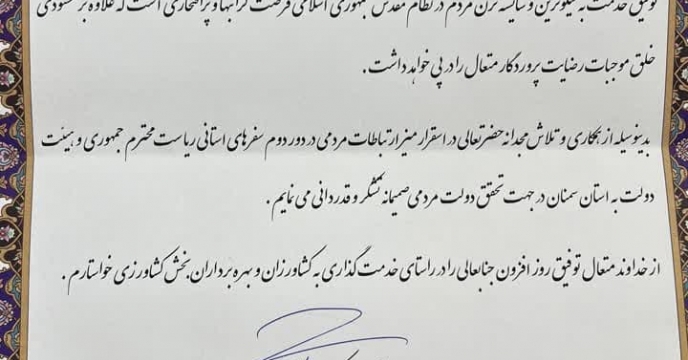 توفیق خدمت به نیکوترین و شایسته ترین مردم در نظام مقدس جمهوری اسلامی فرصت گرانبها و پرافتخاری است که علاوه بر خشنودی
خلق موجبات رضایت پروردگار متعال را در پی خواهد داشت.
بدینوسیله از همکاری و تلاش مجدانه حضرتعالی در استقرار میز ارتباطات مردمی در دور دوم سفرهای استانی ریاست محترم جمهوری و هیئت
دولت به استان سمنان در جهت تحقق دولت مردمی صمیمانه تشکر و قدردانی می نمایم.
از خداوند متعال توفیق روز افزون جنابعالی را در راستای خدمت گذاری به کشاورزان و بهره برداران بخش کشاورزی خواستارم.